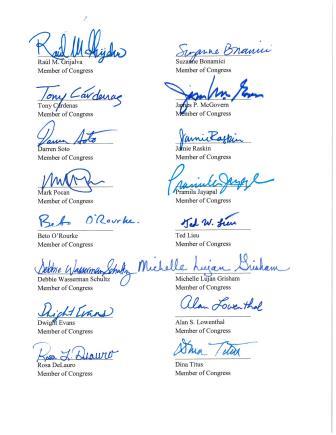 Raúl M. Grijalva
Raúl M. Grijalva
Member of Congress
Suzanne Bonamici
Suzanne Bonamici
Member of Congress
Tony Cárdenas
Tony Cárdenas
Member of Congress
James P. McGovern
Member of Congress
Darren Soto
Darren Soto
Member of Congress
Jamie Raskin
Jamie Raskin
Member of Congress
Mark Pocan
Member of Congress
Pramila Jayapal
Pramila Jayapal
Member of Congress
Beto O'Rourke
Beto O'Rourke
Member of Congress
Ted W. Lieu
Ted Lieu
Member of Congress
Debbie Wasserman Schultz
Debbie Wasserman Schultz
Member of Congress
Michelle Lujan Grisham
Michelle Lujan Grisham
Member of Congress
Dwight Evans
Dwight Evans
Member of Congress
Alan Lowenthal
Alan S. Lowenthal
Member of Congress
Rosa L. DeLauro
Rosa DeLauro
Member of Congress
Dina Titus
Dina Titus
Member of Congress